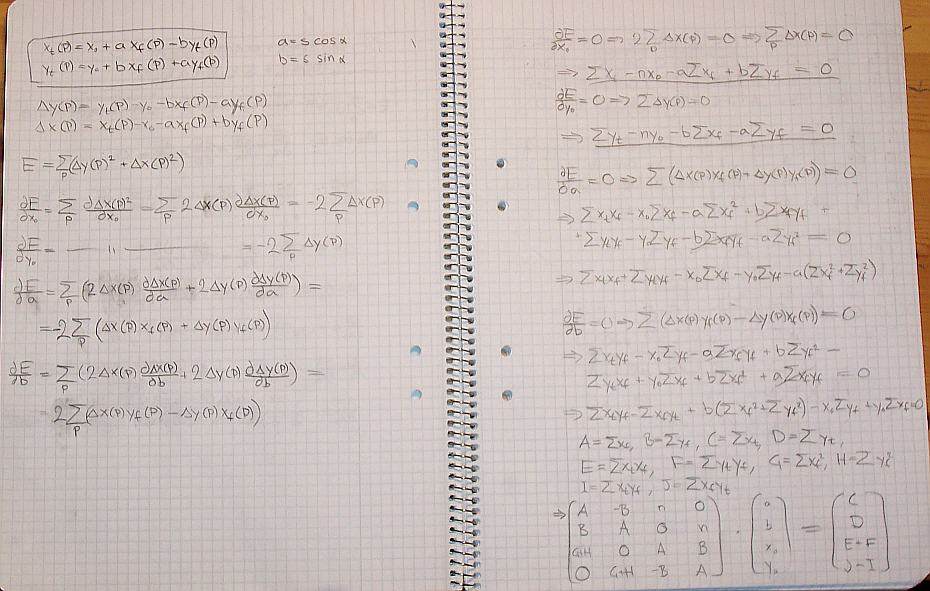 x_t(p) = x_0 + a x_f(p) - b y_f(p)
y_t(p) = y_0 + b x_f(p) + a y_f(p)
a = s cos α
b = s sin α
Δy(p) = y_t(p) - y_0 - b x_f(p) - a y_f(p)
Δx(p) = x_t(p) - x_0 - a x_f(p) + b y_f(p)
E = Σ_p (Δy(p)² + Δx(p)²)
∂E/∂x_0 = Σ_p ∂Δx(p)²/∂x_0 = Σ_p 2Δx(p) ∂Δx(p)/∂x_0 = -2 Σ_p Δx(p)
∂E/∂y_0 = — " — = -2 Σ_p Δy(p)
∂E/∂a = Σ_p (2Δx(p) ∂Δx(p)/∂a + 2Δy(p) ∂Δy(p)/∂a) =
= -2 Σ_p (Δx(p) x_f(p) + Δy(p) y_f(p))
∂E/∂b = Σ_p (2Δx(p) ∂Δx(p)/∂b + 2Δy(p) ∂Δy(p)/∂b) =
= 2 Σ_p (Δx(p) y_f(p) - Δy(p) x_f(p))
∂E/∂x_0 = 0 ⇒ 2 Σ_p Δx(p) = 0 ⇒ Σ_p Δx(p) = 0
⇒ Σx_t - nx_0 - aΣx_f + bΣy_f = 0
∂E/∂y_0 = 0 ⇒ ΣΔy(p) = 0
⇒ Σy_t - ny_0 - bΣx_f - aΣy_f = 0
∂E/∂a = 0 ⇒ Σ(Δx(p)x_f(p) + Δy(p)y_f(p)) = 0
⇒ Σx_t x_f - x_0Σx_f - aΣx_f² + bΣx_f y_f +
+ Σy_t y_f - y_0Σy_f - bΣx_f y_f - aΣy_f² = 0
⇒ Σx_t x_f + Σy_t y_f - x_0Σx_f - y_0Σy_f - a(Σx_f² + Σy_f²)
∂E/∂b = 0 ⇒ Σ(Δx(p)y_f(p) - Δy(p)x_f(p)) = 0
⇒ Σx_t y_f - x_0Σy_f - aΣx_f y_f + bΣy_f² -
Σy_t x_f + y_0Σx_f + bΣx_f² + aΣx_f y_f = 0
⇒ Σx_t y_f - Σx_f y_t + b(Σx_f² + Σy_f²) - x_0Σy_f + y_0Σx_f = 0
A = Σx_f, B = Σy_f, C = Σx_t, D = Σy_t,
E = Σx_t x_f, F = Σy_t y_f, G = Σx_f², H = Σy_f²
I = Σx_t y_f, J = Σx_f y_t
⇒ ( A -B n 0 ) ( a ) ( C )
( B A 0 n ) · ( b ) = ( D )
( G+H 0 A B ) ( x_0 ) ( E+F )
( 0 G+H -B A ) ( y_0 ) ( J-I )